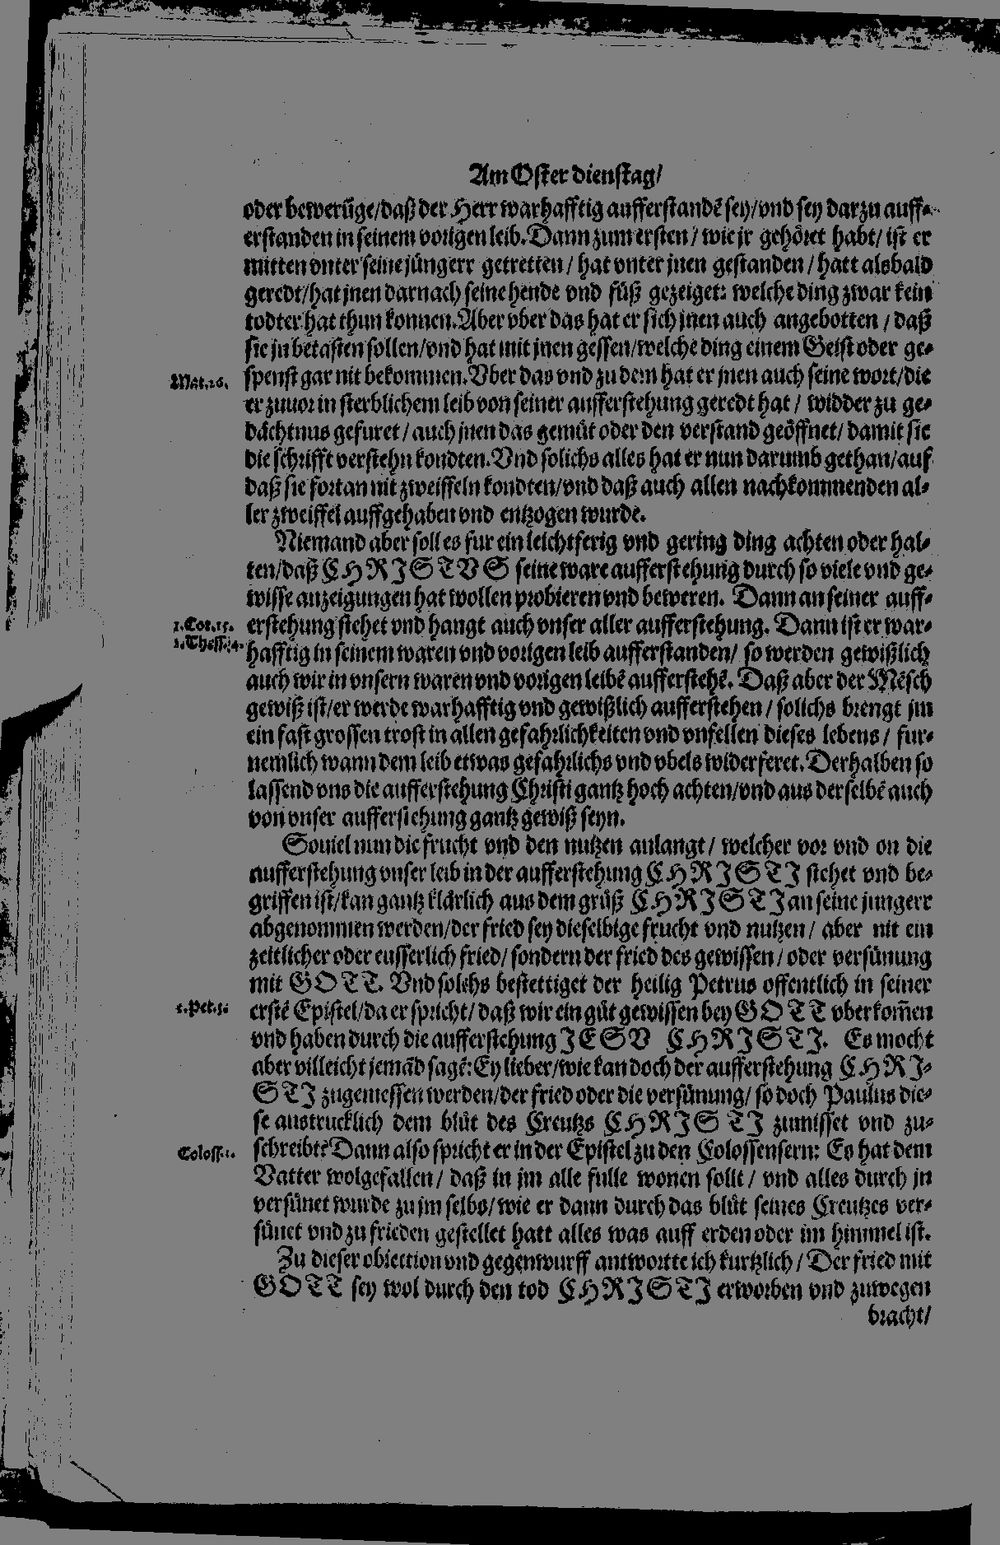 Am Oster dienstag/
oder bewerūge/daß der Herr warhafftig aufferstandē sey/vnd sey darzu auff-
erstanden in seinem vorigen leib. Dann zum ersten/ wie jr gehöret habt/ ist er
mitten vnter seine jüngerr getretten / hat vnter jnen gestanden / hatt alsbald
geredt/hat jnen darnach seine hende vnd füß gezeiget: welche ding zwar kein
todter hat thun konnen. Aber vber das hat er sich jnen auch angebotten / daß
sie jn betasten sollen/vnd hat mit jnen gessen/welche ding einem Geist oder ge-
Mat.26.
spenst gar nit bekommen. Vber das vnd zu dem hat er jnen auch seine wort/die
er zuuor in sterblichem leib von seiner aufferstehung geredt hat / widder zu ge-
dächtnus gefuret / auch jnen das gemüt oder den verstand geöffnet/ damit sie
die schrifft verstehn kondten. Vnd solichs alles hat er nun darumb gethan/auf
daß sie fortan nit zweiffeln kondten/vnd daß auch allen nachkommenden al-
ler zweiffel auffgehaben vnd entzogen wurde.
Niemand aber soll es fur ein leichtferig vnd gering ding achten oder hal-
ten/daß CHRISTVS seine ware aufferstehung durch so viele vnd ge-
wisse anzeigungen hat wollen probieren vnd beweren. Dann an seiner auff-
1.Cor.15.
erstehung stehet vnd hangt auch vnser aller aufferstehung. Dann ist er war-
1.Thess.4.
hafftig in seinem waren vnd vorigen leib aufferstanden/ so werden gewißlich
auch wir in vnsern waren vnd vorigen leibē aufferstehē. Daß aber der Mēsch
gewiß ist/er werde warhafftig vnd gewißlich aufferstehen / solichs brengt jm
ein fast grossen trost in allen gefahrlichkeiten vnd vnfellen dieses lebens / fur-
nemlich wann dem leib etwas gefahrlichs vnd vbels widerferet. Derhalben so
lassend vns die aufferstehung Christi gantz hoch achten/vnd aus derselbē auch
von vnser aufferstehung gantz gewiß seyn.
Souiel nun die frucht vnd den nutzen anlangt / welcher vor vnd on die
aufferstehung vnser leib in der aufferstehung CHRISTI stehet vnd be-
griffen ist/kan gantz klärlich aus dem grüß CHRISTI an seine jungerr
abgenommen werden/der fried sey dieselbige frucht vnd nutzen/ aber nit ein
zeitlicher oder eusserlich fried/ sondern der fried des gewissen/ oder versünung
mit GOTT. Vnd solchs bestettiget der heilig Petrus offentlich in seiner
1.Pet.3.
erstē Epistel/da er spricht/ daß wir ein güt gewissen bey GOTT vberkom̄en
vnd haben durch die aufferstehung JESV CHRISTI. Es mocht
aber villeicht jemād sagē: Ey lieber/wie kan doch der aufferstehung CHRI-
STI zugemessen werden/der fried oder die versünung/ so doch Paulus die-
se austrucklich dem blüt des Creutzs CHRISTI zumisset vnd zu-
Coloss.1.
schreibte? Dann also spricht er in der Epistel zu den Colossensern: Es hat dem
Vatter wolgefallen/ daß in jm alle fulle wonen sollt/ vnd alles durch jn
versünet wurde zu jm selbs/ wie er dann durch das blüt seines Creutzes ver-
sünet vnd zu frieden gestellet hatt alles was auff erden oder im himmel ist.
Zu dieser obiection vnd gegenwurff antwortte ich kurtzlich/ Der fried mit
GOTT sey wol durch den tod CHRISTI erworben vnd zuwegen
bracht/